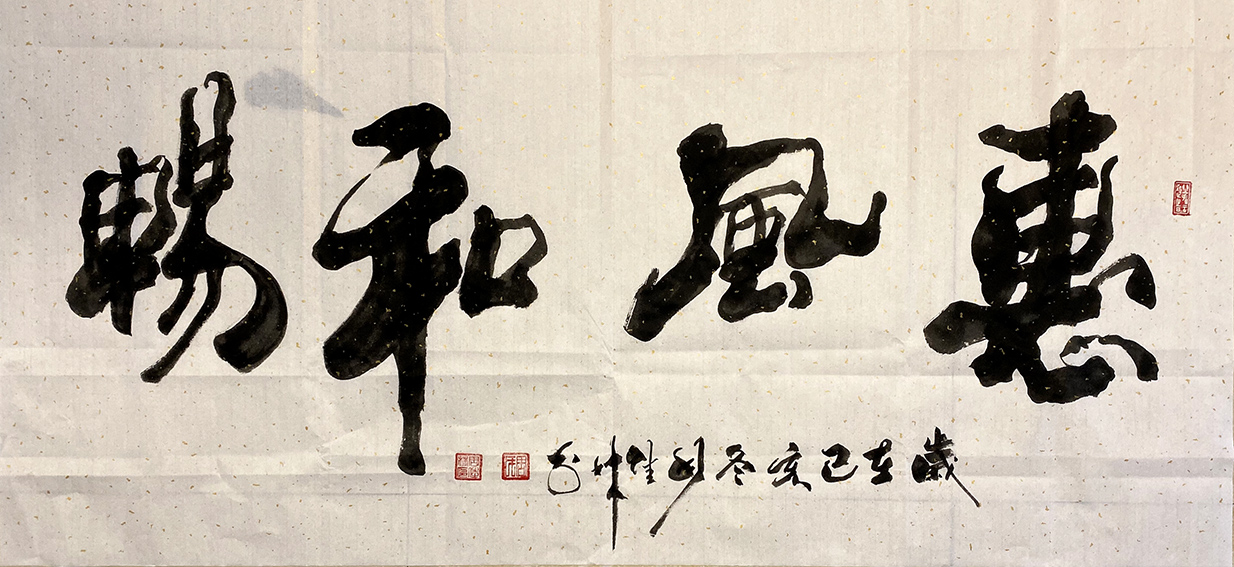 惠風和暢
歲在己亥冬月佳